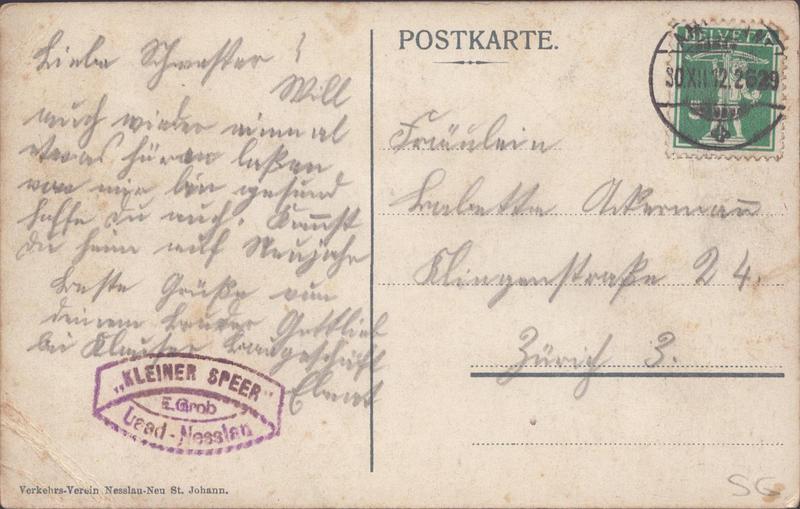 Liebe Schwester!
Will
auch wieder einmal
etwas hören laßen
von mir bin gesund
hoffe du auch. Kannst
du heim auf Neujahr
Beste Grüße von
deinem Bruder Gottlieb
bei Klauser Baugeschäft
Ebnat
„KLEINER SPEER“
E. Grob
Laad-Nesslau
Verkehrs-Verein Nesslau-Neu St. Johann.
POSTKARTE.
HELVETIA
30.XII.12.
Fräulein
Babette Ackermann
Klingenstraße 24.
Zürich 3.
SG